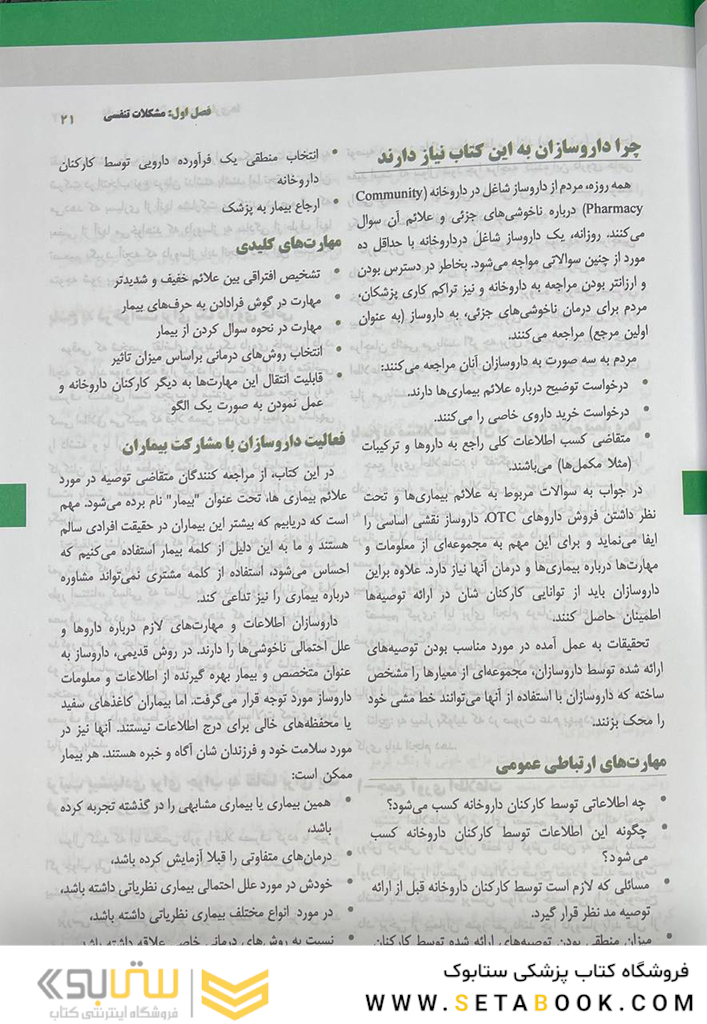 فصل اول: مشکلات تنفسی ۲۱
چرا داروسازان به این کتاب نیاز دارند
همه روزه، مردم از داروساز شاغل در داروخانه (Community
Pharmacy) درباره ناخوشی‌های جزئی و علائم آن سوال
می‌کنند. روزانه، یک داروساز شاغل درداروخانه با حداقل ده
مورد از چنین سوالاتی مواجه می‌شود. بخاطر در دسترس بودن
و ارزانتر بودن مراجعه به داروخانه و نیز تراکم کاری پزشکان،
مردم برای درمان ناخوشی‌های جزئی، به داروساز (به عنوان
اولین مرجع) مراجعه می‌کنند.
مردم به سه صورت به داروسازان آنان مراجعه می‌کنند:
• درخواست توضیح درباره علائم بیماری‌ها دارند.
• درخواست خرید داروی خاصی را می‌کنند.
• متقاضی کسب اطلاعات کلی راجع به داروها و ترکیبات
(مثلا مکمل‌ها) می‌باشند.
در جواب به سوالات مربوط به علائم بیماری‌ها و تحت
نظر داشتن فروش داروهای OTC، داروساز نقشی اساسی را
ایفا می‌نماید و برای این مهم به مجموعه‌ای از معلومات و
مهارت‌ها درباره بیماری‌ها و درمان آنها نیاز دارد. علاوه براین
داروسازان باید از توانایی کارکنان شان در ارائه توصیه‌ها
اطمینان حاصل کنند.
تحقیقات به عمل آمده در مورد مناسب بودن توصیه‌های
ارائه شده توسط داروسازان، مجموعه‌ای از معیارها را مشخص
ساخته که داروسازان با استفاده از آنها می‌توانند خط مشی خود
را محک بزنند.
مهارت‌های ارتباطی عمومی
• چه اطلاعاتی توسط کارکنان داروخانه کسب می‌شود؟
• چگونه این اطلاعات توسط کارکنان داروخانه کسب
می‌شود؟
• مسائلی که لازم است توسط کارکنان داروخانه قبل از ارائه
توصیه مد نظر قرار گیرد.
• میزان منطقی بودن توصیه‌های ارائه شده توسط کارکنان
• انتخاب منطقی یک فرآورده دارویی توسط کارکنان
داروخانه
• ارجاع بیمار به پزشک
مهارت‌های کلیدی
• تشخیص افتراقی بین علائم خفیف و شدیدتر
• مهارت در گوش فرادادن به حرف‌های بیمار
• مهارت در نحوه سوال کردن از بیمار
• انتخاب روش‌های درمانی براساس میزان تاثیر
• قابلیت انتقال این مهارت‌ها به دیگر کارکنان داروخانه و
عمل نمودن به صورت یک الگو
فعالیت داروسازان با مشارکت بیماران
در این کتاب، از مراجعه کنندگان متقاضی توصیه در مورد
علائم بیماری ها، تحت عنوان "بیمار" نام برده می‌شود. مهم
است که دریابیم که بیشتر این بیماران در حقیقت افرادی سالم
هستند و ما به این دلیل از کلمه بیمار استفاده می‌کنیم که
احساس می‌شود، استفاده از کلمه مشتری نمی‌تواند مشاوره
درباره بیماری را نیز تداعی کند.
داروسازان اطلاعات و مهارت‌های لازم درباره داروها و
علل احتمالی ناخوشی‌ها را دارند. در روش قدیمی، داروساز به
عنوان متخصص و بیمار بهره گیرنده از اطلاعات و معلومات
داروساز مورد توجه قرار می‌گرفت. اما بیماران کاغذهای سفید
یا محفظه‌های خالی برای درج اطلاعات نیستند. آنها نیز در
مورد سلامت خود و فرزندان شان آگاه و خبره هستند. هر بیمار
ممکن است:
• همین بیماری یا بیماری مشابهی را در گذشته تجربه کرده
باشد،
• درمان‌های متفاوتی را قبلا آزمایش کرده باشد،
• خودش در مورد علل احتمالی بیماری نظریاتی داشته باشد،
• در مورد انواع مختلف بیماری نظریاتی داشته باشد،
• نسبت به روش‌های درمانی خاصی علاقه داشته باشد
فروشگاه کتاب پزشکی ستابوک
WWW.SETABOOK.COM
ستابوک
فروشگاه اینترنتی کتاب